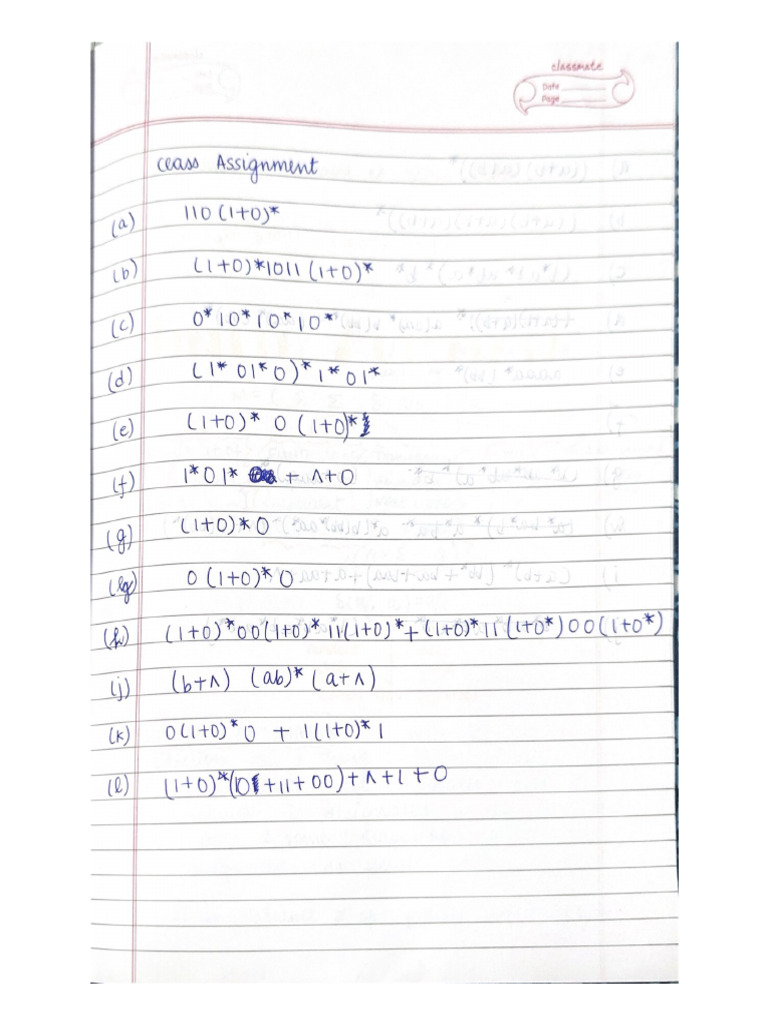 classmate
Date
Page
Class Assignment
(a) 110 (1+0)*
(b) (1+0)*1011 (1+0)*
(c) 0*10*10*10*
(d) (1* 01*0)*1*01*
(e) (1+0)* 0 (1+0)*
(f) 1*01* + ∧+0
(g) (1+0)*0
0 (1+0)*0
(h) (1+0)*00(1+0)*11(1+0)*+(1+0)*11(1+0*)00(1+0*)
(j) (b+∧) (ab)*(a+∧)
(k) 0(1+0)*0 + 1(1+0)*1
(l) (1+0)*(10+11+00)+∧+1+0